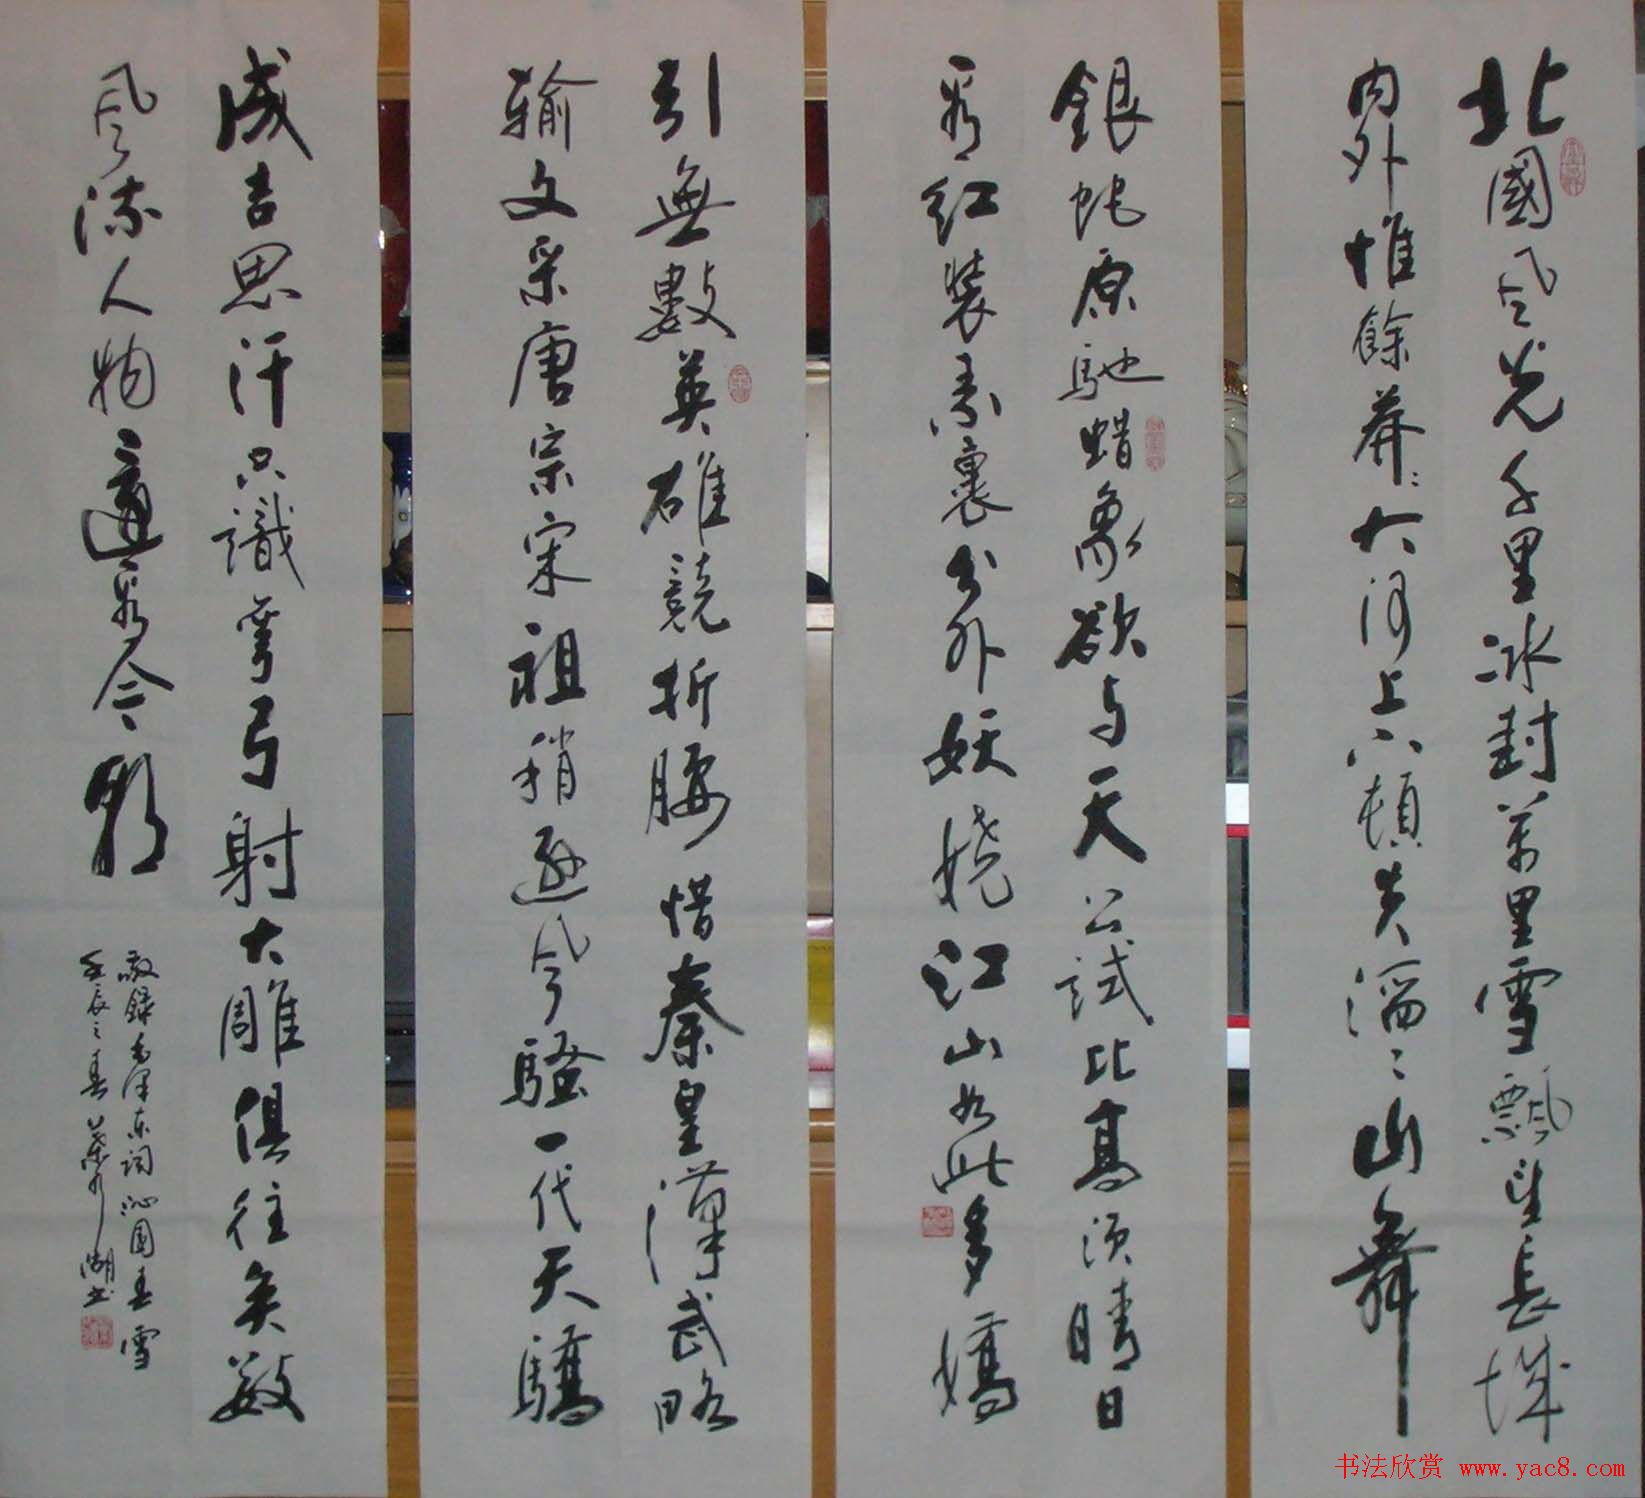 北國风光千里冰封萬里雪飄望長城
内外惟餘莽々大河上下頓失滔々山舞
銀蛇原馳蜡象欲与天公試比高须晴日
看红裝素裹分外妖娆江山如此多嬌
引無數英雄競折腰惜秦皇漢武略
输文采唐宗宋祖稍遜风騷一代天驕
成吉思汗只識弯弓射大雕俱往矣數
风流人物還看今朝
敬錄毛泽东词沁園春雪
壬辰之春 湖书
书法欣赏 www.yac8.com